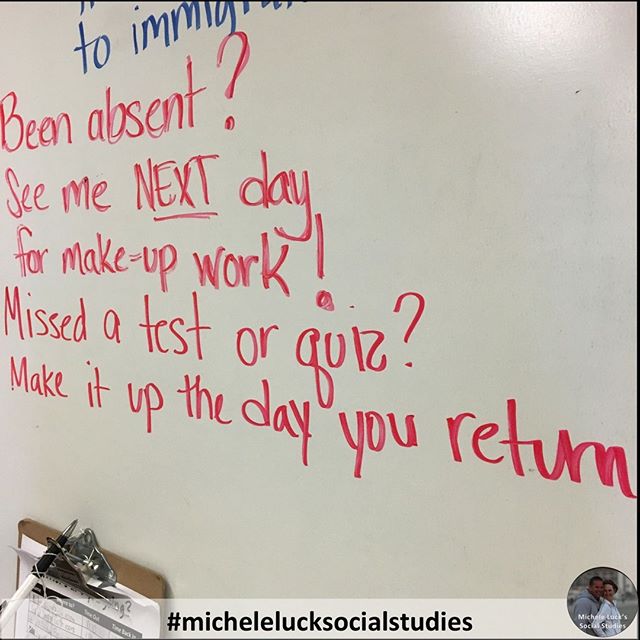 to immigra
Been absent?
See me NEXT day
for make-up work!
Missed a test or quiz?
Make it up the day you return
Time Back In
#michelelucksocialstudies
Michele Luck's
Social Studies